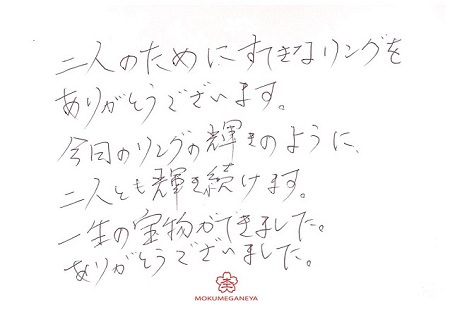 二人のためにすてきなリングを
ありがとうございます。
今日のリングの輝きのように、
二人とも輝き続けます。
一生の宝物ができました。
ありがとうございました。
MOKUMEGANEYA